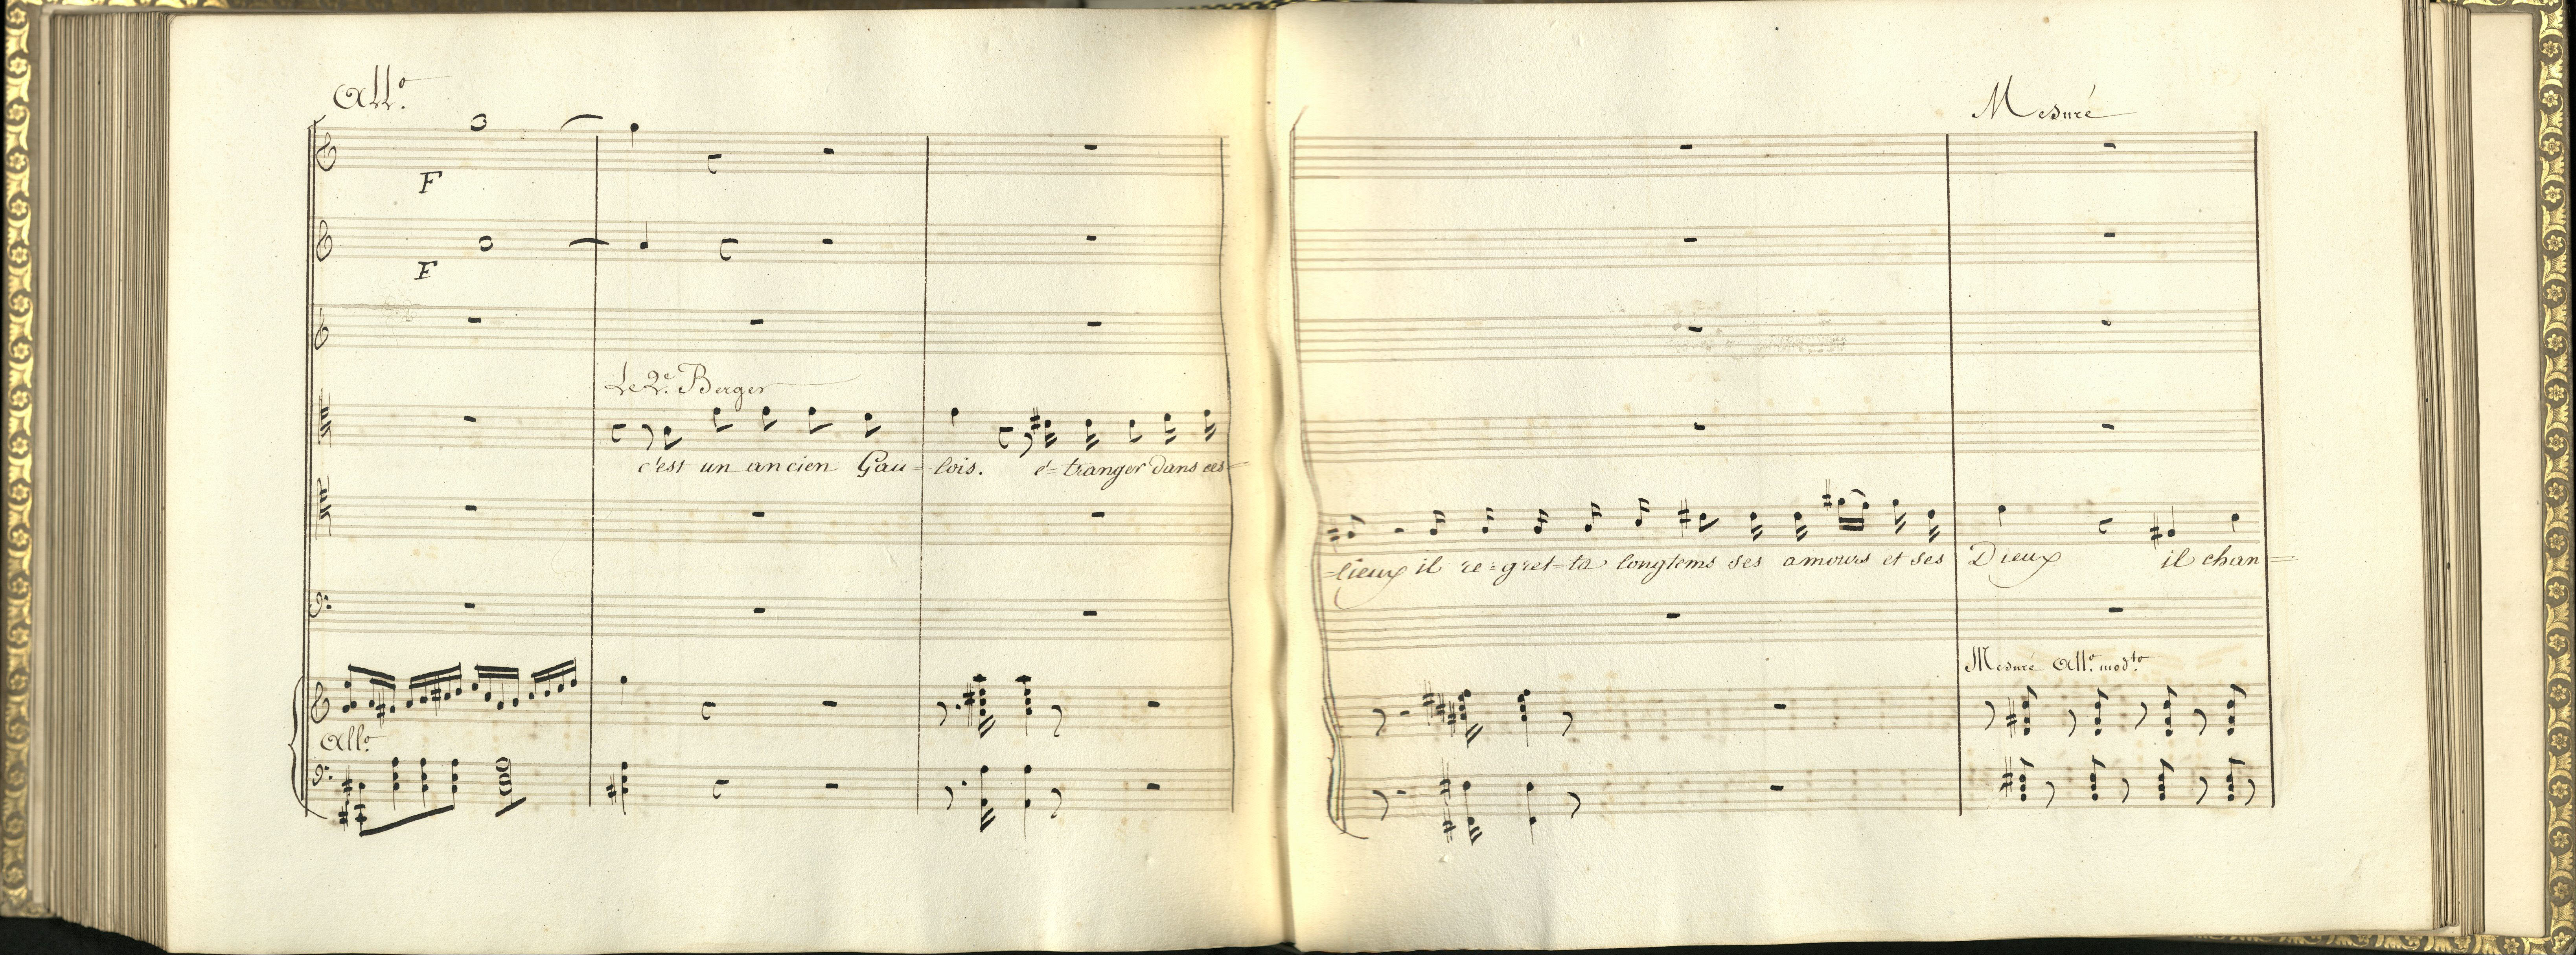 All.o
F
F
Le 2.e Berger
c'est un ancien Gau=lois. é=tranger dans ces=
All.o
Mesuré
=lieux il re=gret=ta longtems ses amours et ses Dieux il chan=
Mesuré All.o mod.to